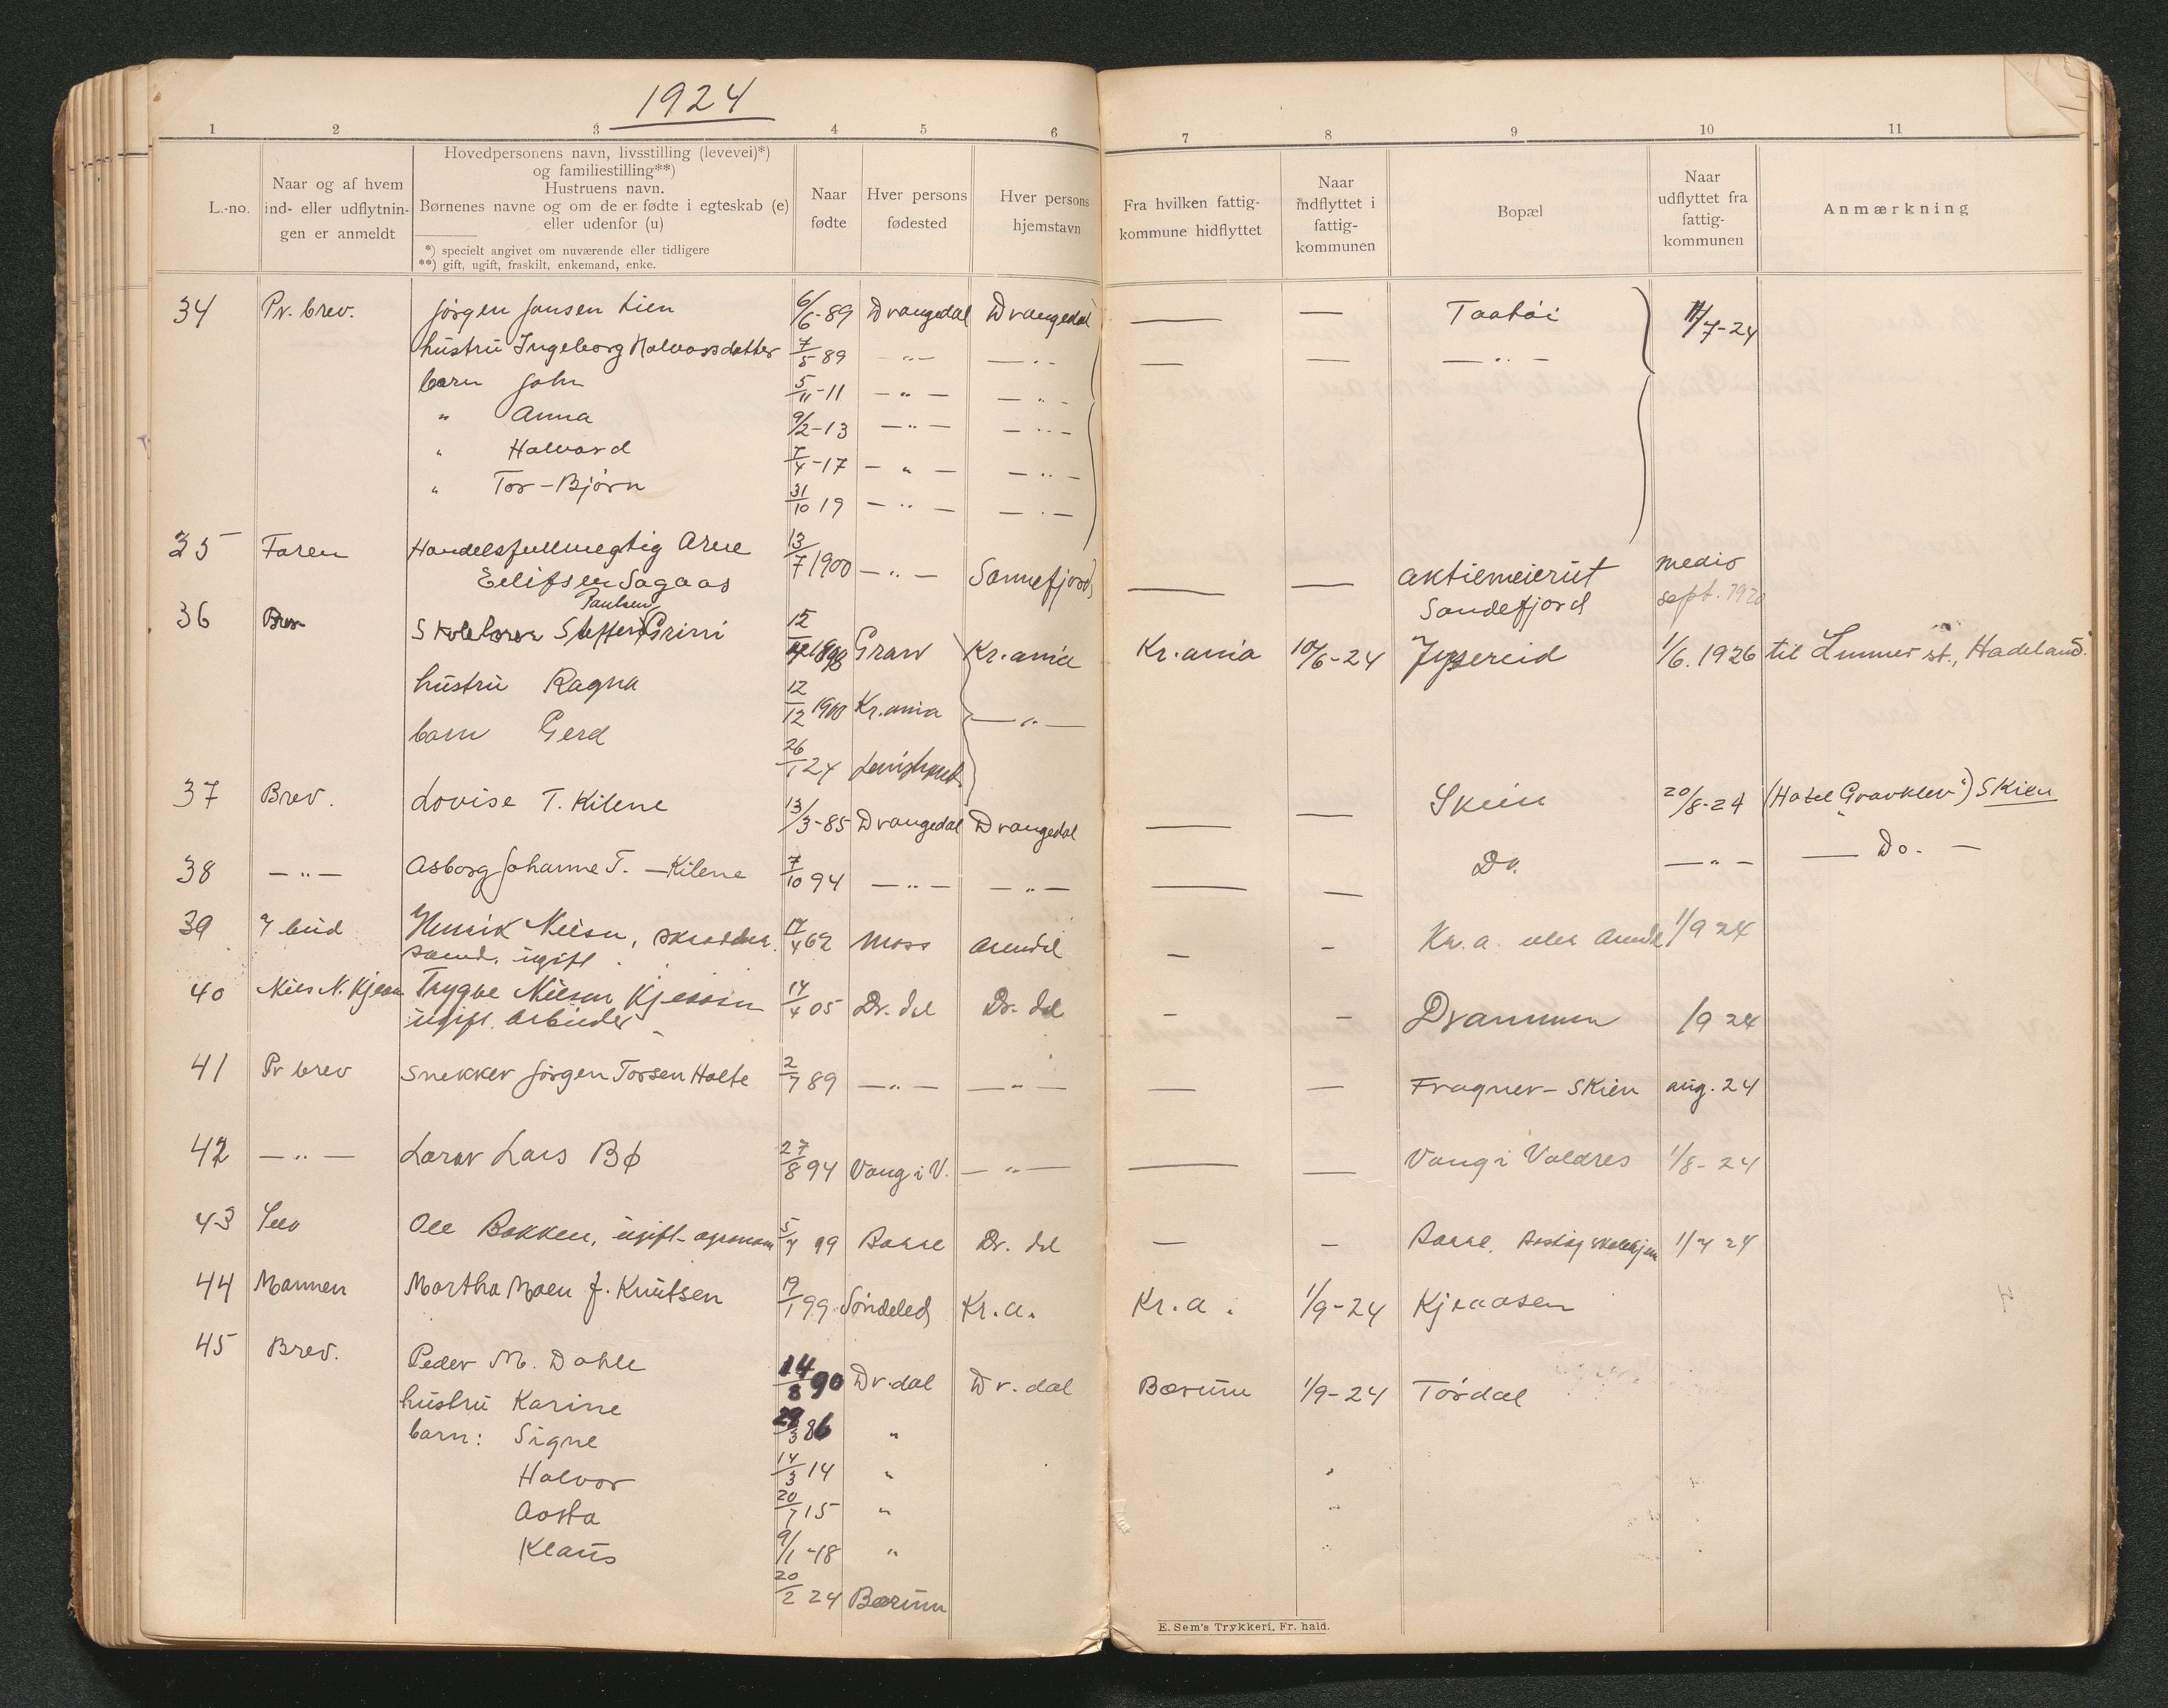 1924
1 2 3 4 5 6 7 8 9 10 11
L.-no.
Naar og af hvem
ind- eller udflytnin-
gen er anmeldt
Hovedpersonens navn, livsstilling (levevei)*)
og familiestilling**)
Hustruens navn.
Børnenes navne og om de er fødte i egteskab (e)
eller udenfor (u)
*) specielt angivet om nuværende eller tidligere
**) gift, ugift, fraskilt, enkemand, enke.
Naar
fødte
Hver persons
fødested
Hver persons
hjemstavn
Fra hvilken fattig-
kommune hidflyttet
Naar
indflyttet i
fattig-
kommunen
Bopæl
Naar
udflyttet fra
fattig-
kommunen
Anmærkning
34 Pr. brev. Jørgen Jansen Lien 6/6-89 Drangedal Drangedal — — Taatøi 11/7-24
hustru Ingeborg Halvorsdatter 7/5 89 -"- — " - — — — " —
barn John 5/11-11 — " — — " -
" Anna 9/2-13 — " — — " —
" Halvard 7/4-17 — " — — " -
" Tor-Bjørn 31/10 19 — " — — " —
35 Faren Handelsfullmegtig Arne 13/7 1900 — " — Sannefjord — — Aktiemeieriet medio
Eilifsen Sagaas Sandefjord sept. 1920
36 Brev Skolelærer Steffen Paulsen Grini 12/ 1898 Gran Kr.ania Kr.ania 10/6-24 1/6.1926 til Lunner st., Hadeland.
hustru Ragna 12/12 1900 Kr.ania — " —
barn Gerd 26/1 24
37 Brev. Lovise T. Kilene 13/3-85 Drangedal Drangedal — — Skien 20/8-24 (Hotel Gravklev") Skien
38 — " — Asborg Johanne T. — Kilene 7/10 94 — " — — " — — — Do. — " — — Do. —
39 Henrik Nilsen, skrædder. 17/4 62 Moss Arendal - - Kr.a. eller Arendl 1/9 24
ugift
40 Nils N. Kjeåsen Trygve Nilsen Kjeåsen 14/4 05 Dr.dal Dr.dal - - Drammen /9 24
ugift. arbeider
41 Pr brev Snekker Jørgen Torsen Holte 2/7 89 — " — — " — — — Fragner - Skien aug. 24
42 — " — Lærer Lars Bø 27/8 94 Vang i V. — " — — — Vang i Valdres 1/8-24
43 Ole Bakken, ugift - agronom 5/7 99 Dr. dal — - 1/7 24
44 Mannen Martha Moen f. Knutsen 19/1 99 Søndeled Kr.a. Kr.a. 1/9-24 Kjeaasen
45 Brev. Peder M. Dahle 14/8 90 Dr.dal Dr.dal Bærum 1/9-24 Tørdal
hustru Karine 29/3 86 "
barn: Signe 14/3 14 "
Halvor 20/7 15 "
Aasta 9/1-18 "
Klaus 20/2 24 Bærum
E. Sem's Trykkeri, Fr. hald.